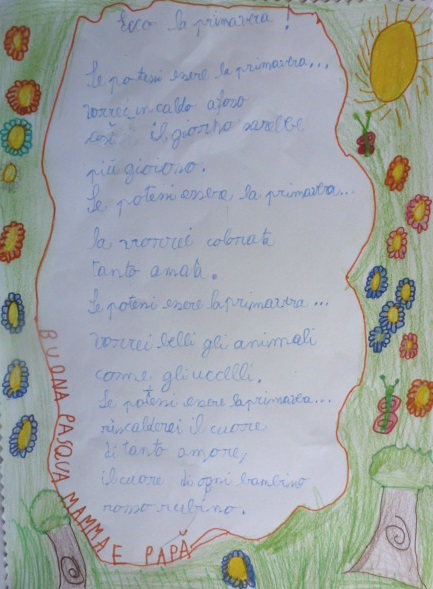 Ecco la primavera !
Se potessi essere la primavera...
vorrei un caldo afoso
così il giorno sarebbe
più gioioso.
Se potessi essere la primavera...
la vorrei colorata
tanto amata.
Se potessi essere la primavera...
vorrei belli gli animali
come gli uccelli.
Se potessi essere la primavera...
riscalderei il cuore
di tanto amore,
il cuore di ogni bambino
rosso rubino.
BUONA PASQUA MAMMA E PAPÀ